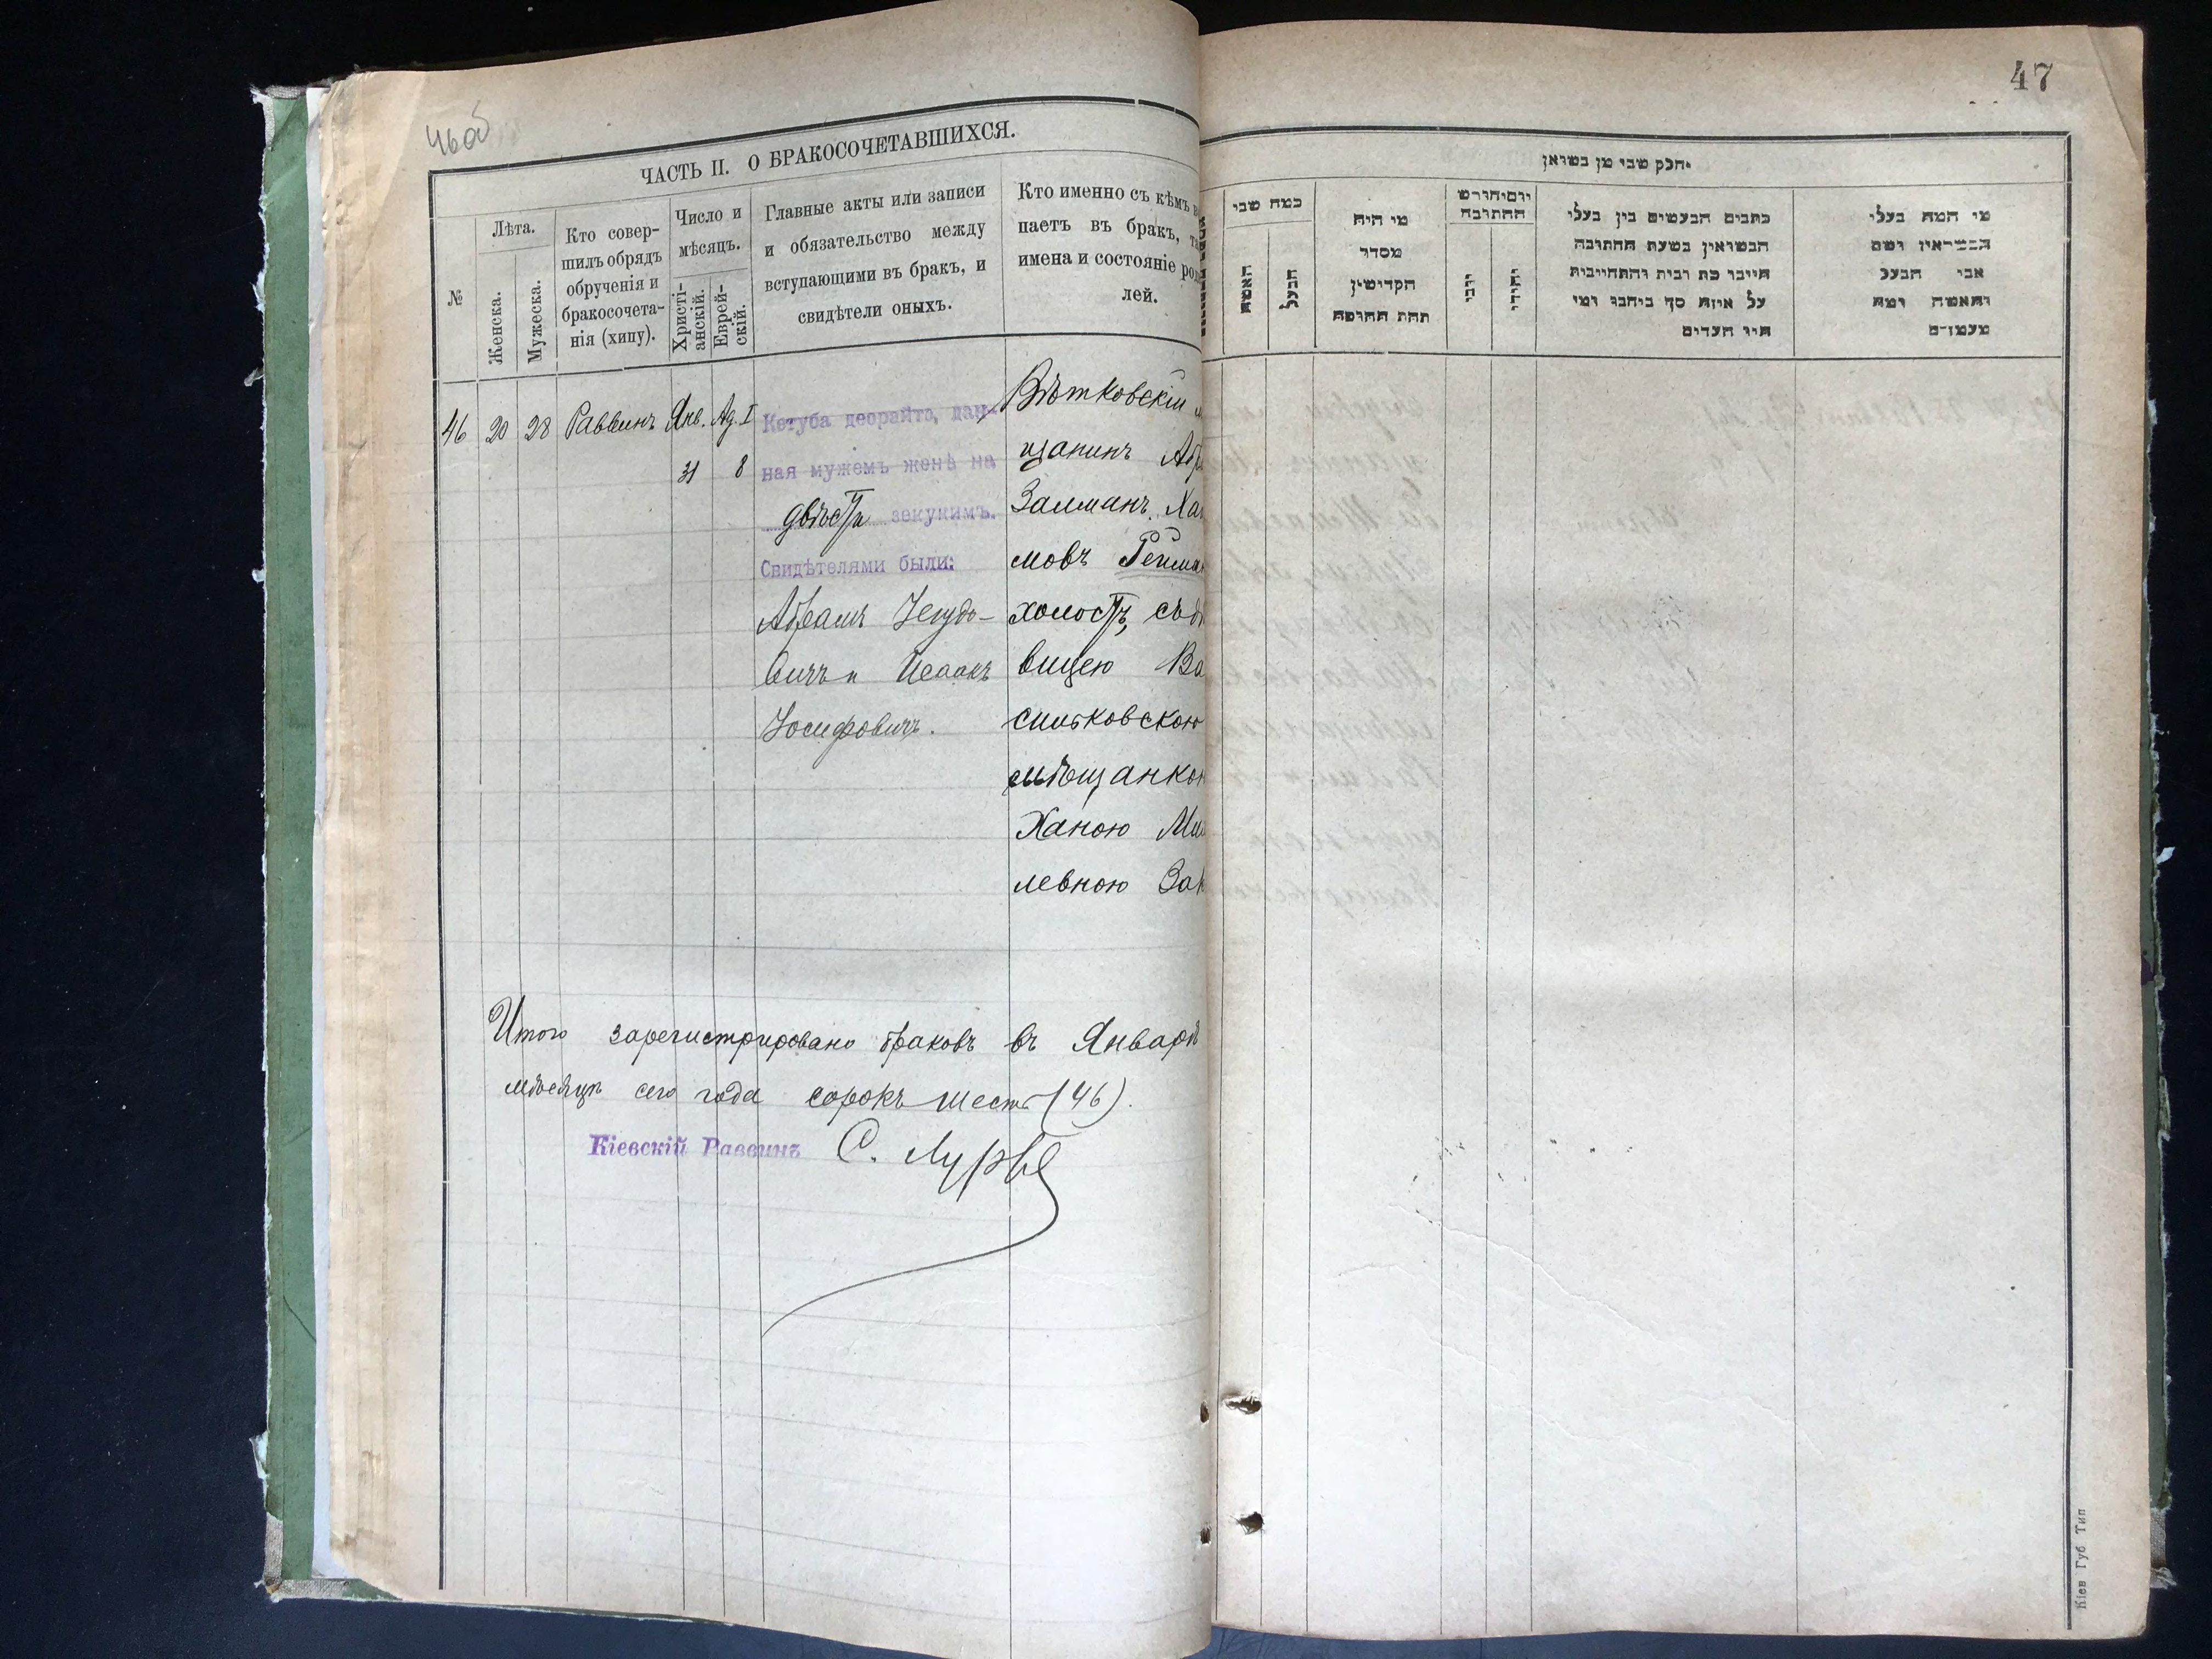 46об
ЧАСТЬ II. О БРАКОСОЧЕТАВШИХСЯ.
№
Лѣта.
Женска.
Мужеска.
Кто совер-
шилъ обрядъ
обрученія и
бракосочета-
нія (хипу).
Число и
мѣсяцъ.
Христі-
анскій.
Еврей-
скій.
Главные акты или записи
и обязательство между
вступающими въ бракъ, и
свидѣтели оныхъ.
Кто именно съ кѣмъ в
паетъ въ бракъ, та
имена и состояніе род
лей.
46 20 28 Раввинъ Янв. Ад. I
31 8
Кетуба деорайто, дан-
ная мужемъ женѣ на
двѣсти зекукимъ.
Свидѣтелями были:
Абрамъ Іегудо-
вичъ и Исаакъ
Іосифовичъ.
Вѣтковскій м
щанинъ Абр
Залманъ Ха
мовъ Гейма
холостъ, съ дѣ
вицею Ва
сильковскою
мѣщанкою
Ханою Ми
левною Зак
Итого зарегистрировано браковъ въ Январѣ
мѣсяцѣ сего года сорокъ шесть (46).
Кіевскій Раввинъ С. Лурье
47
חלק שני מן נשואין
כמה שני
האשה
הבעל
מי היה
מסדר
הקדושין
תחת החופה
יום וחודש
החתונה
יוני
יהודי
כתבים הנעשים בין בעלי
הנשואין בשעת החתונה
חייבו כת רבית והתחייבות
על איזה סך ביחבו ומי
היו העדים
מי המה בעלי
הנשואין ושם
אבי הבעל
והאשה ומה
מעמדם
Кіев Губ Тип